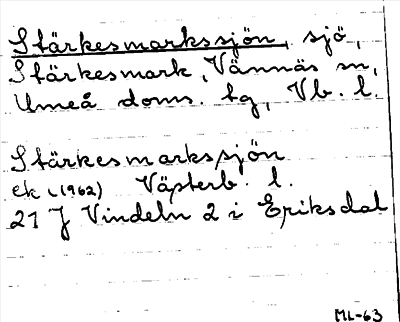 Stärkesmarkssjön, sjö,
Stärkesmark, Vännäs sn,
Umeå doms. tg, Vb. l.
Stärkesmarkssjön
ek (1962) Västerb. l.
21 J Vindeln 2 i Eriksdal
ML-63